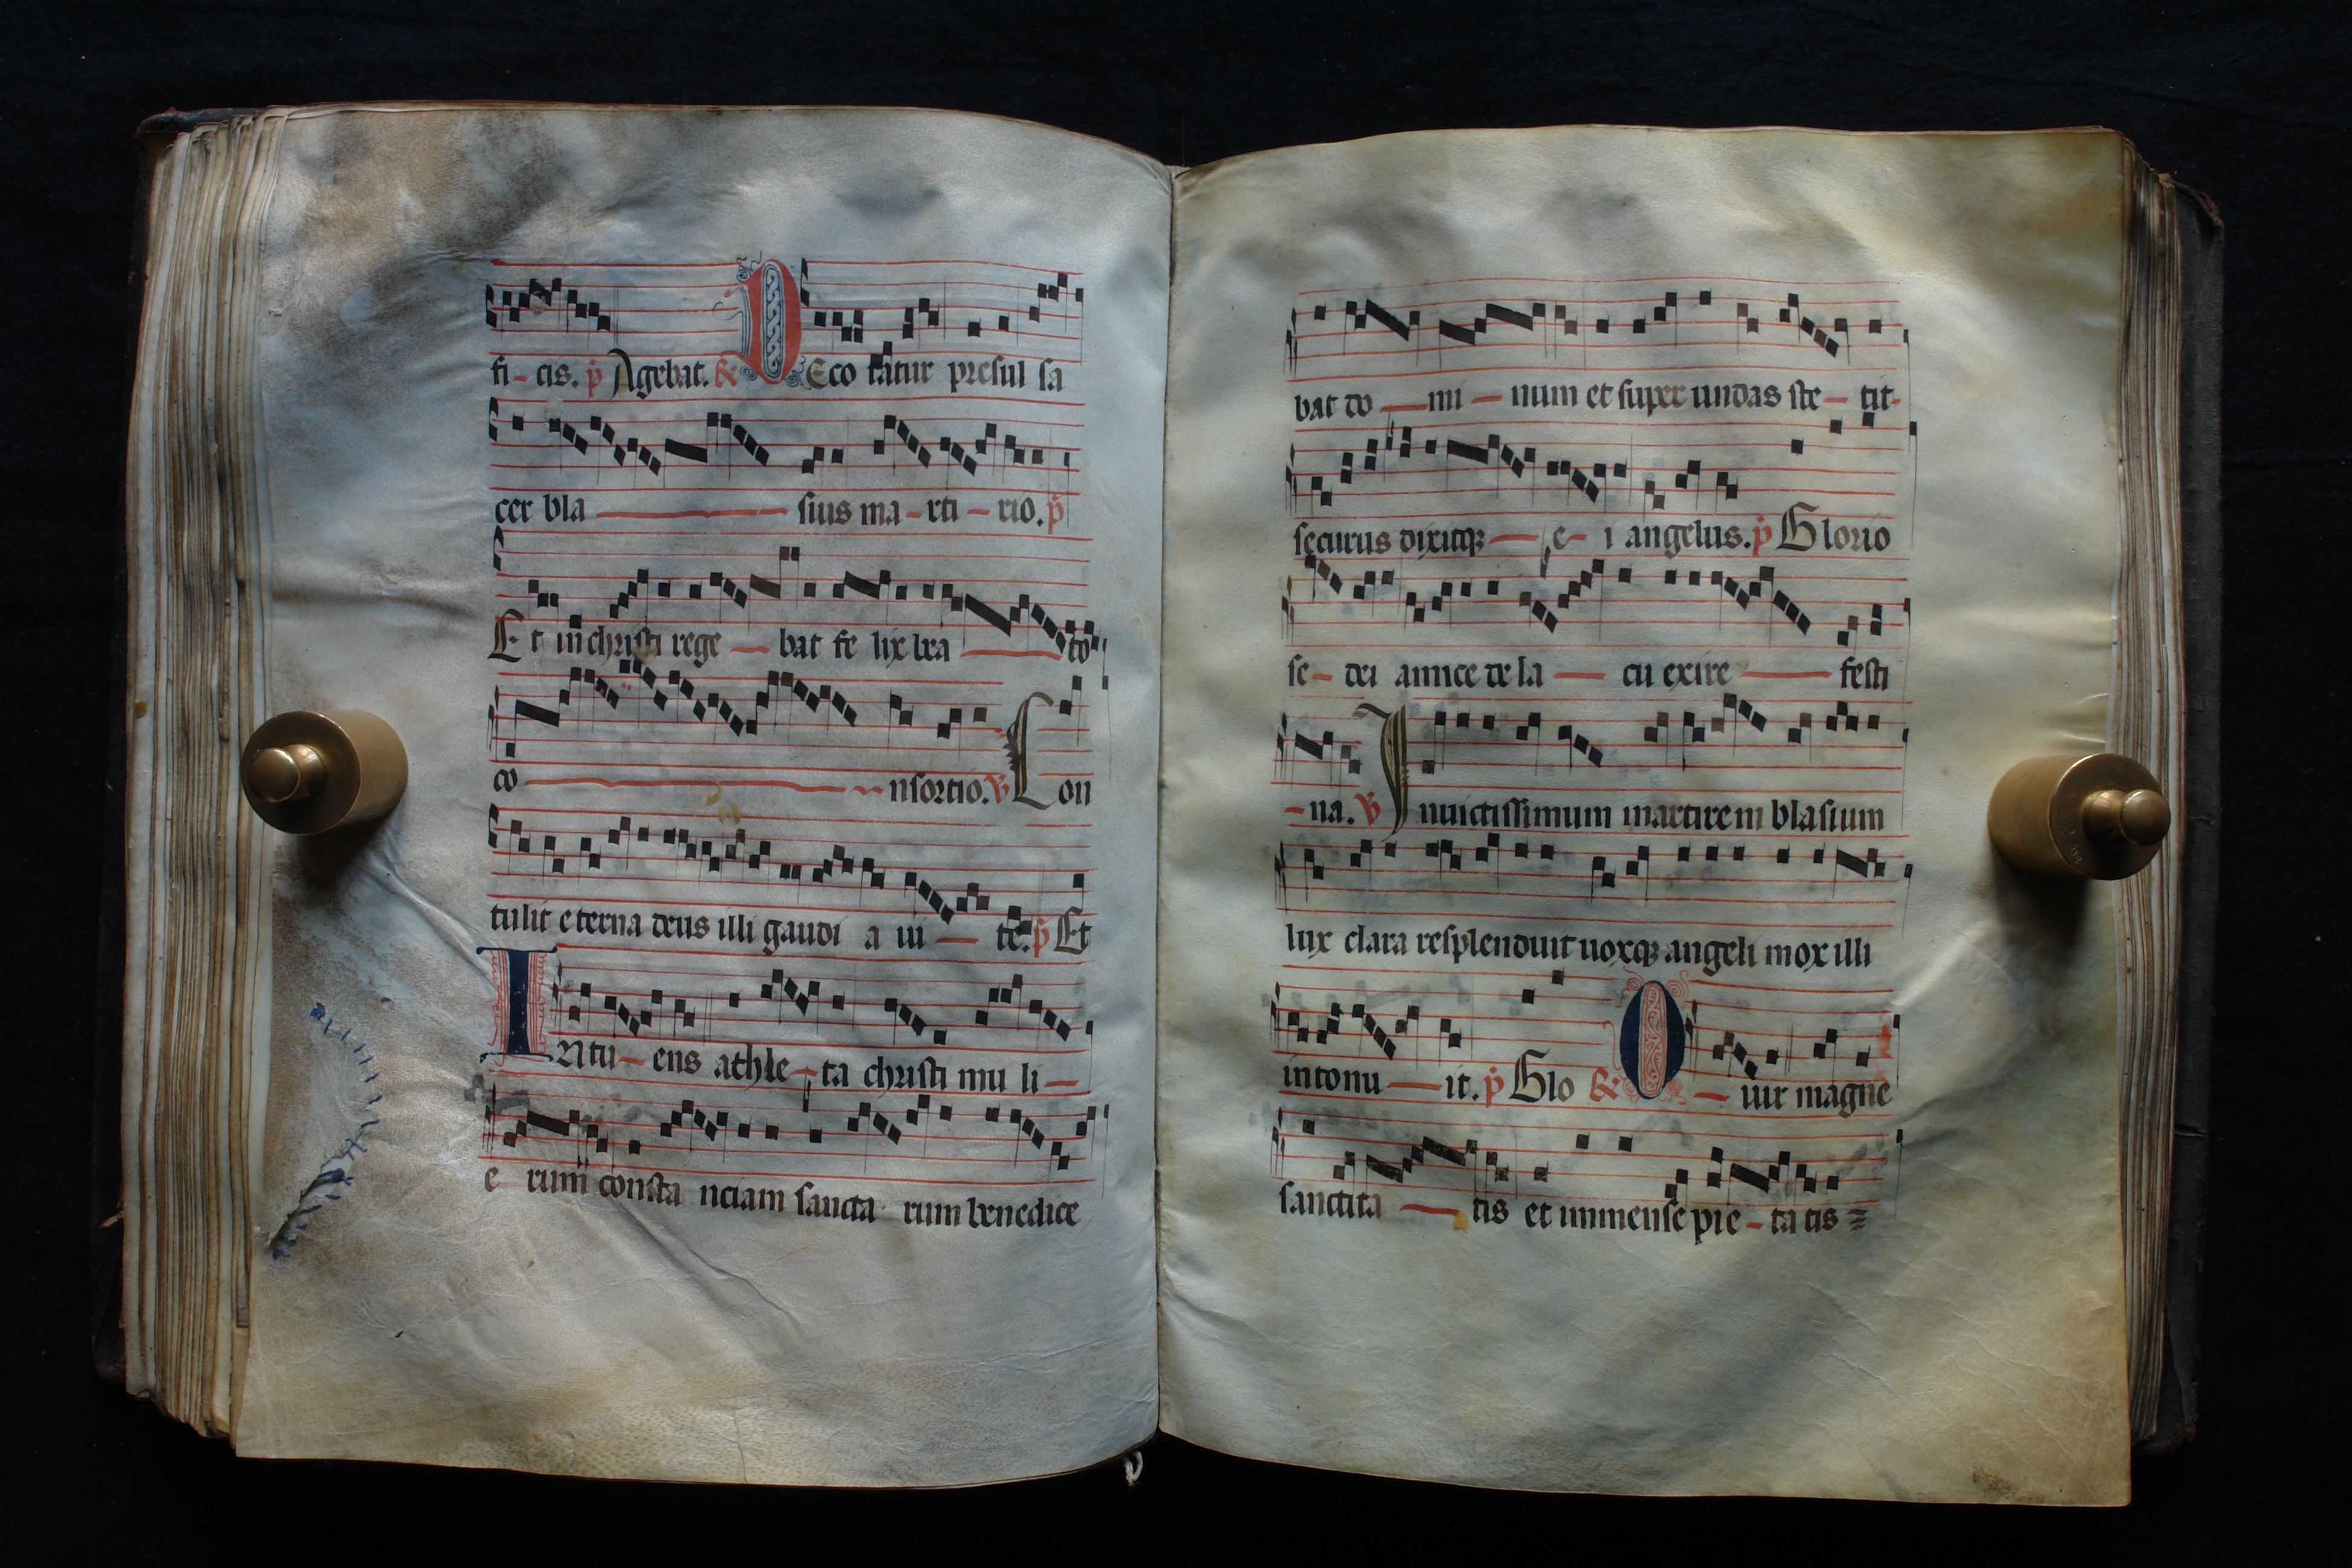 fi - cis. p Agebat. R DEco ratur presul sa
cer bla sius ma - rti - rio. p
Et in christi rege bat fe lix bea to
co nsortio. v Con
tulit eterna deus illi gaudi a ui te. p Et
INtu - ens athle - ta christi mu li -
e rum consta nciam sancta rum benedice
bat do mi num et super undas ste - tit -
securus dixitqȝ e - i angelus. p Glorio
se - dei amice de la cu exire festi
- na. v Inuictissimum martirem blasium
lux clara resplenduit uoxqȝ angeli mox illi
intonu it. p Glo R O - uir magne
sanctita tis et immense pie - ta tis